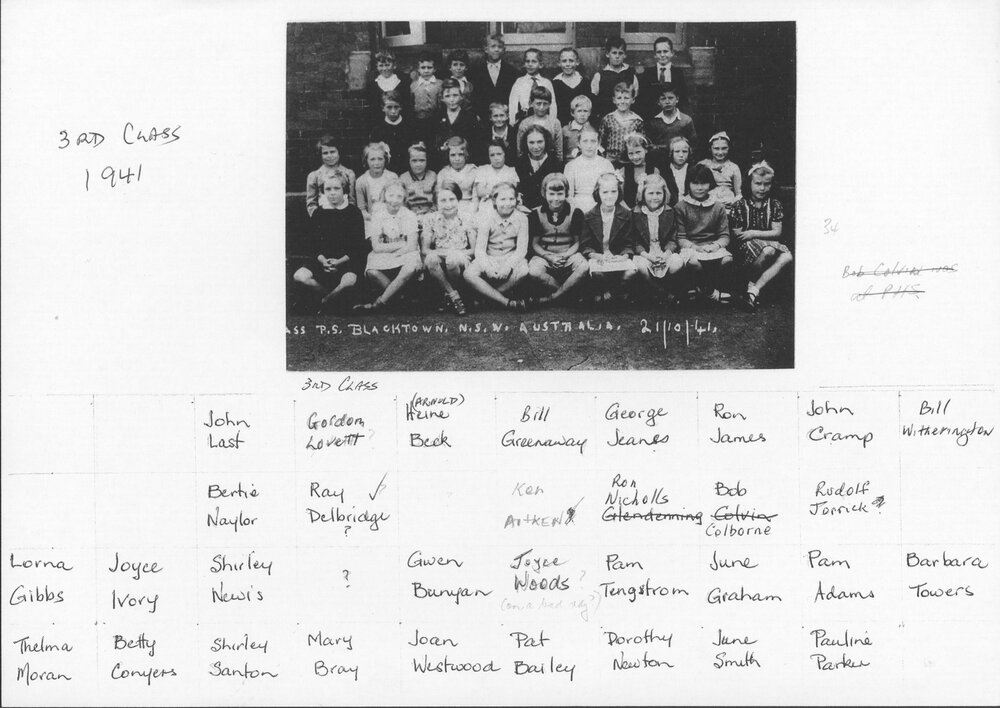 3RD CLASS
1941
34
Bob Colvin was
at PHS
ASS P.S. BLACKTOWN. N.S.W. AUSTRALIA. 21/10/41.
3RD CLASS
John Last
Gordon Lovett?
(ARNOLD) Heine Beek
Bill Greenaway
George Jeanes
Ron James
John Cramp
Bill Witherington
Bertie Naylor
Ray Delbridge ?
Ken AITKEN
Ron Nicholls Glendenning
Bob Colvin Colborne
Rudolf Jorrick?
Lorna Gibbs
Joyce Ivory
Shirley Newis
?
Gwen Bunyan
Joyce Woods ? (on a bad day?)
Pam Tengstrom
June Graham
Pam Adams
Barbara Towers
Thelma Moran
Betty Conyers
Shirley Santon
Mary Bray
Joan Westwood
Pat Bailey
Dorothy Newton
June Smith
Pauline Parker